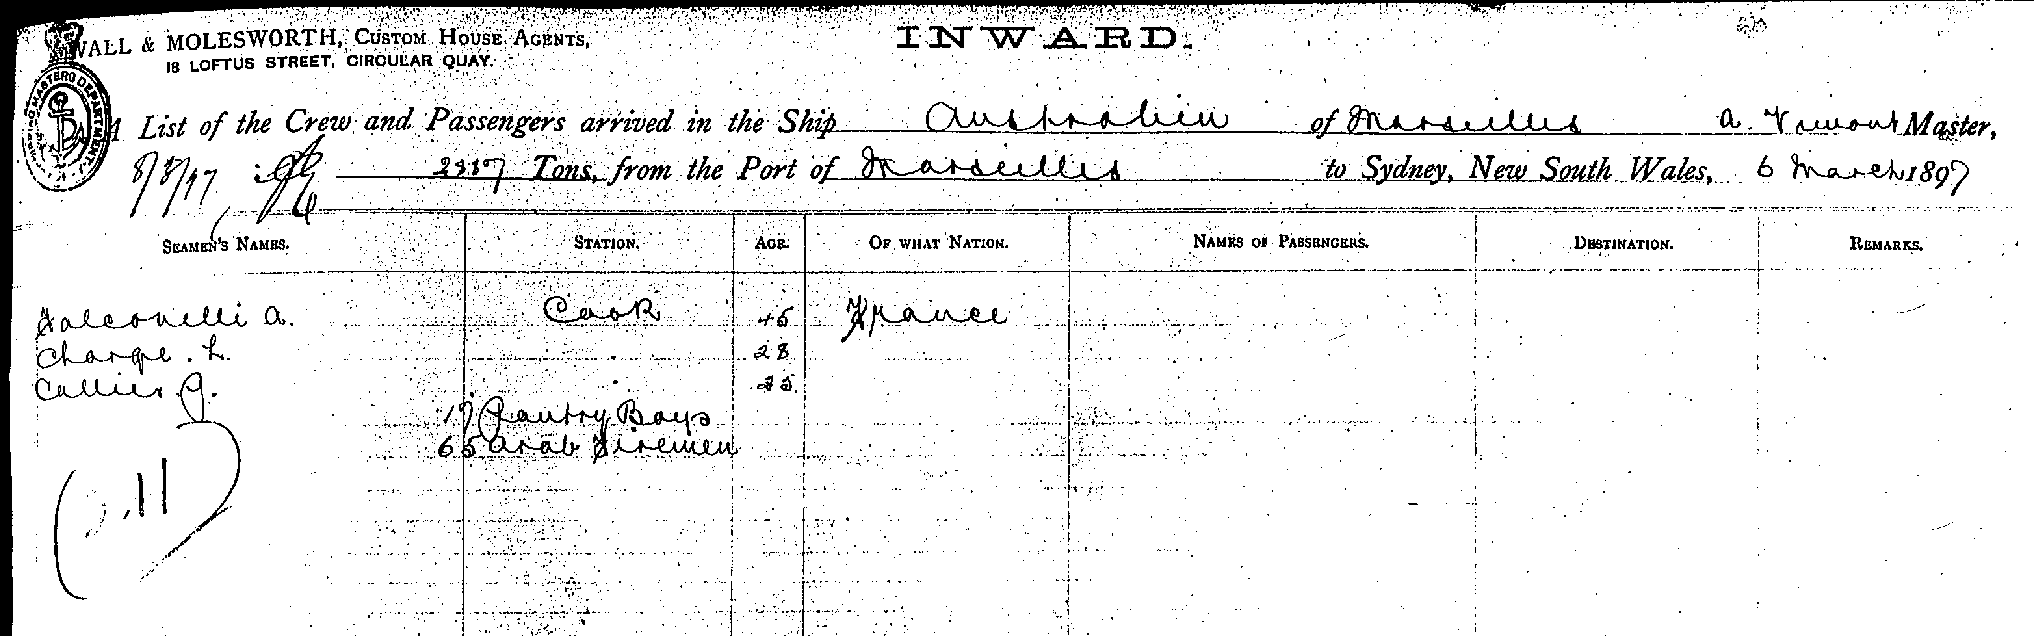 WALL & MOLESWORTH, CUSTOM HOUSE AGENTS,
18 LOFTUS STREET, CIRCULAR QUAY.
INWARD.
A List of the Crew and Passengers arrived in the Ship Australien of Marseilles A. Vimont Master,
Tons, from the Port of Marseilles to Sydney, New South Wales, 6 March 1897
SEAMEN'S NAMES. STATION. AGE. OF WHAT NATION. NAMES OF PASSENGERS. DESTINATION. REMARKS.
Falconelli A. Cook 45 France
Charge. L. 28
Collier G.
17 Pantry Boys
65 Arab Firemen